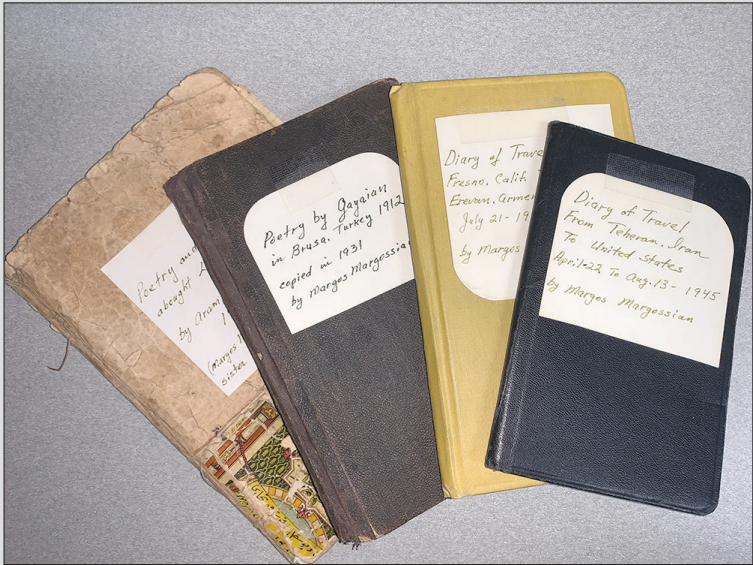 Poetry and
abought
by Aram
(Margos
sister
Poetry by Gayaian
in Brusa, Turkey 1912
copied in 1931
by Margos Margossian
Diary of Trave
Fresno, Calif.
Erevan, Armen
July 21- 19
by Margos
Diary of Travel
From Teheran, Iran
To United States
April-22 To Aug. 13- 1945
by Margos Margossian